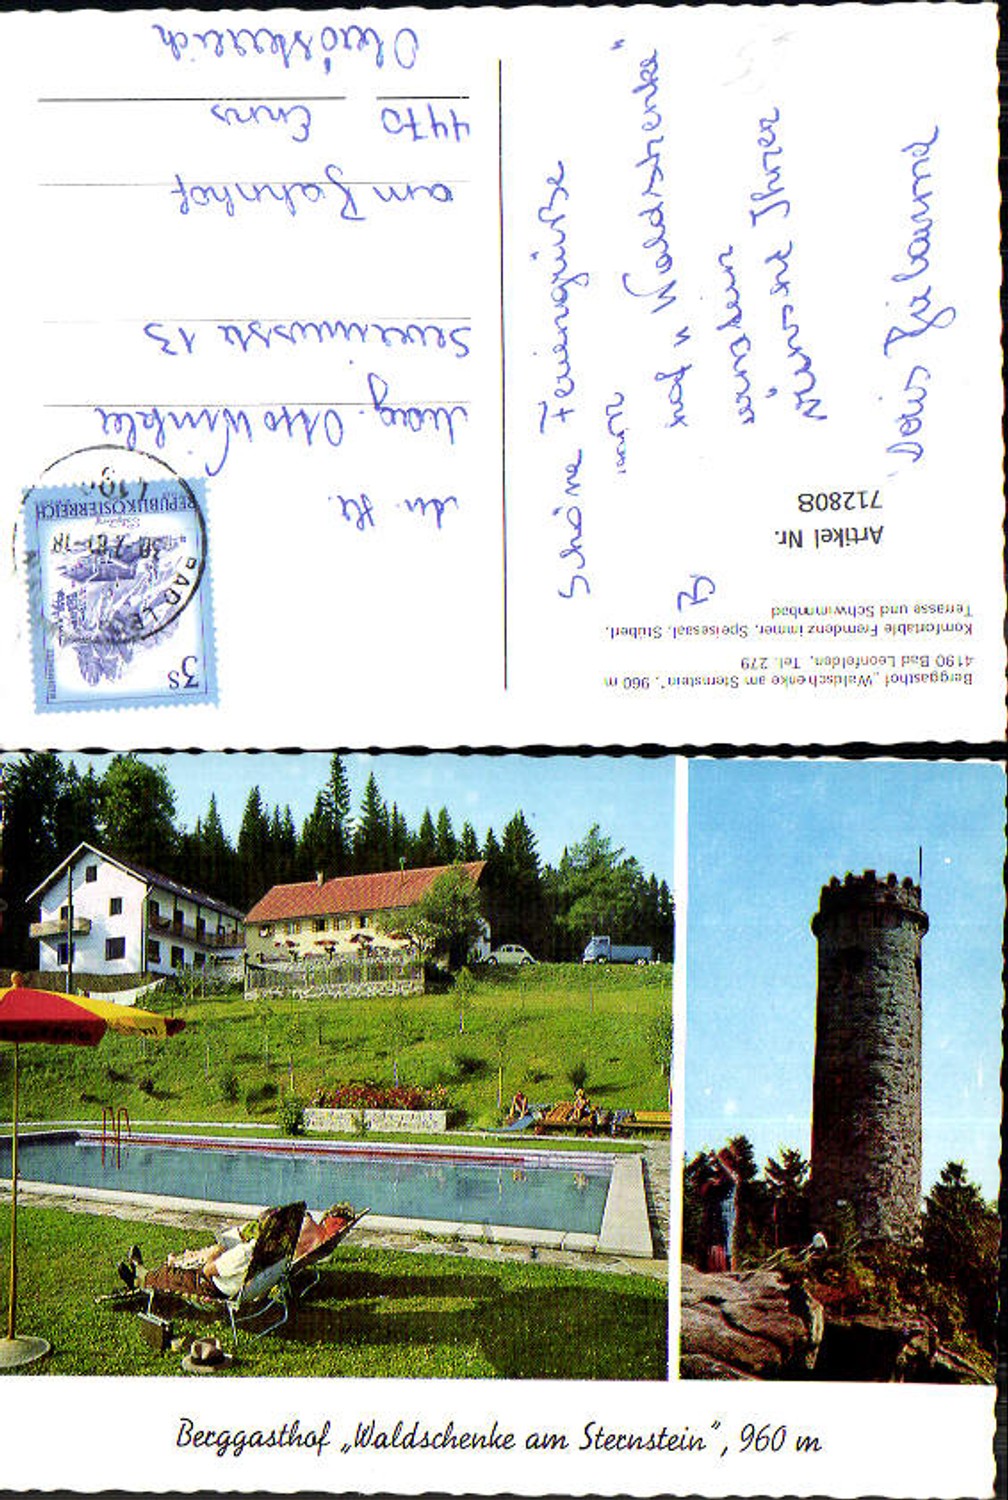 Berggasthof „Waldschenke am Sternstein", 960 m
4190 Bad Leonfelden, Tel. 279
Komfortable Fremdenzimmer, Speisesaal, Stüberl,
Terrasse und Schwimmbad
Artikel Nr.
712808
Schöne Feriengrüße
hof „Waldschenke"
3 S
REPUBLIK ÖSTERREICH
An Hr.
Mag. Otto Winkler
Severinusstr 13
am Bahnhof
4470 Enns
Oberösterreich
Berggasthof „Waldschenke am Sternstein", 960 m